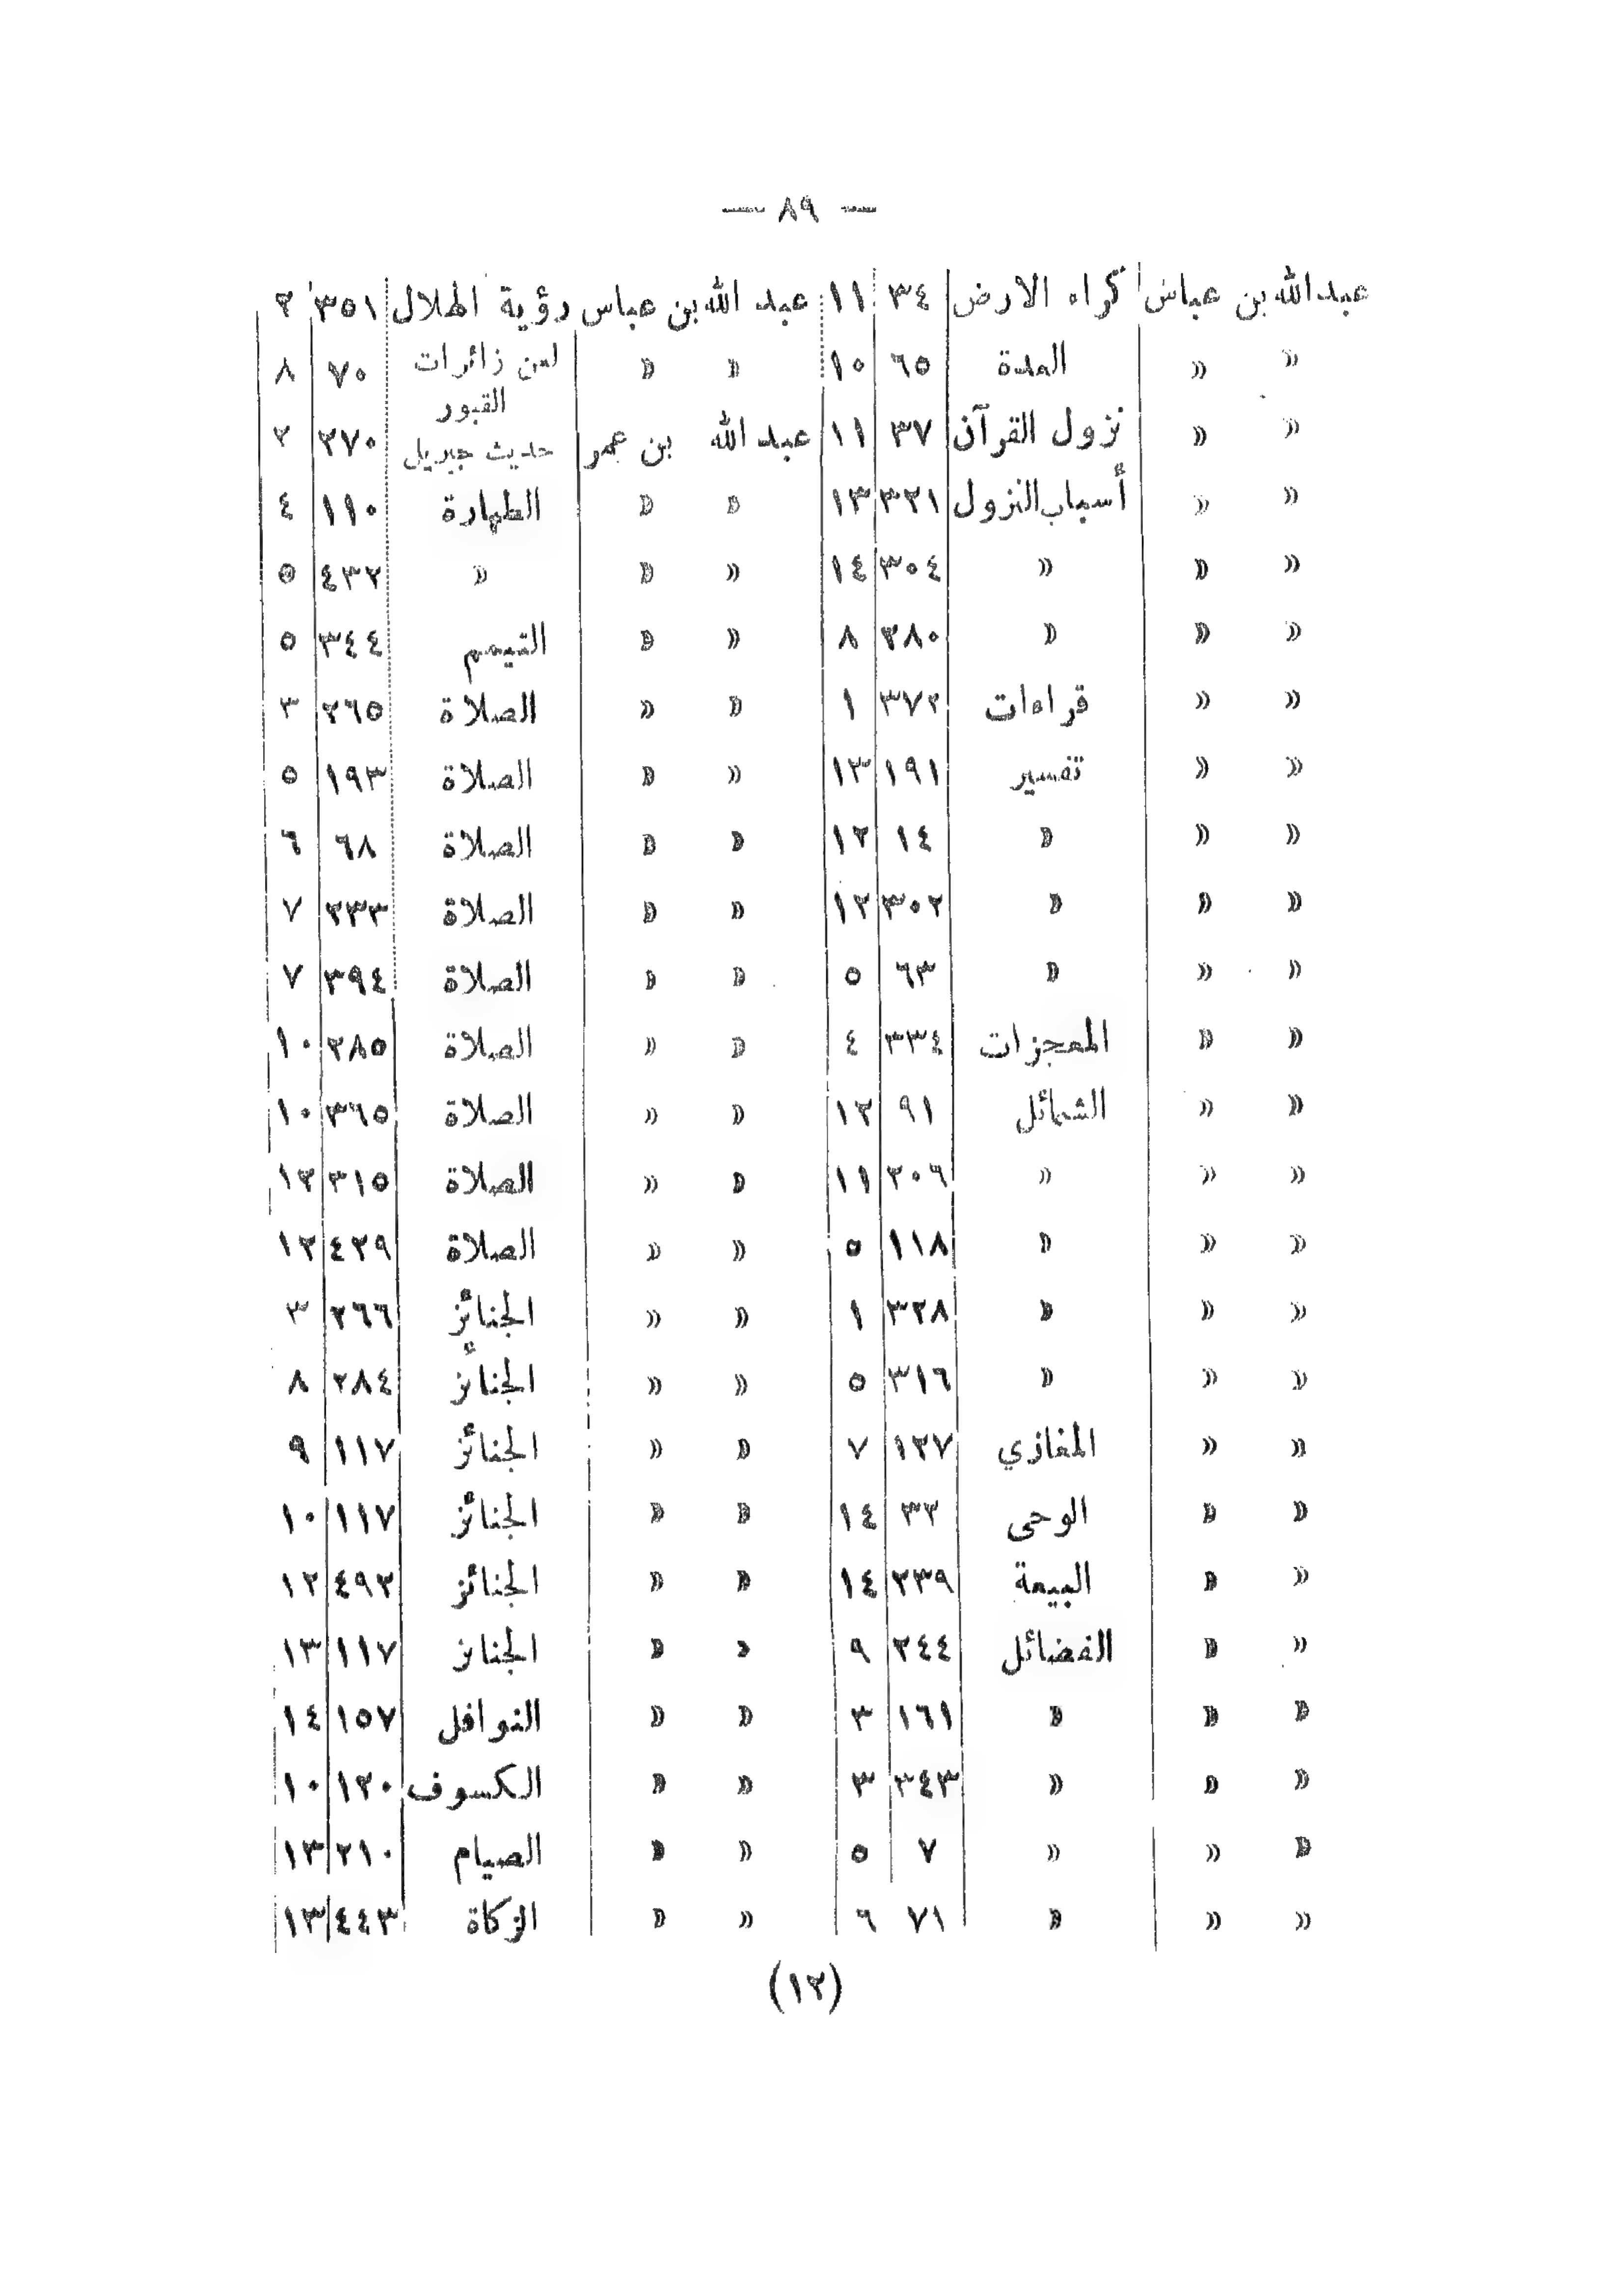 — ٨٩ —
عبدالله بن عباس كراء الارض ٣٤ ١١ عبد الله بن عباس رؤية الهلال ٣٥١ ٢
» » العدة ٦٥ ١٠ » » لعن زائرات القبور ٧٠ ٨
» » نزول القرآن ٣٧ ١١ عبد الله بن عمر حديث جبريل ٢٧٠ ٢
» » أسباب النزول ٣٢١ ١٣ » » الطهارة ١١٠ ٤
» » » ٣٠٤ ١٤ » » » ٤٣٢ ٥
» » » ٢٨٠ ٨ » » التيمم ٣٤٤ ٥
» » قراءات ٣٧٢ ١ » » الصلاة ٢٦٥ ٣
» » تفسير ١٩١ ١٣ » » الصلاة ١٩٣ ٥
» » » ١٤ ١٢ » » الصلاة ٦٨ ٦
» » » ٣٠٢ ١٢ » » الصلاة ٢٣٣ ٧
» » » ٦٣ ٥ » » الصلاة ٣٩٤ ٧
» » المعجزات ٣٣٤ ٤ » » الصلاة ٢٨٥ ١٠
» » الشمائل ٩١ ١٢ » » الصلاة ٣٦٥ ١٠
» » » ٢٠٩ ١١ » » الصلاة ٣١٥ ١٢
» » » ١١٨ ٥ » » الصلاة ٤٢٩ ١٢
» » » ٣٢٨ ١ » » الجنائز ٢٦٦ ٣
» » » ٣١٦ ٥ » » الجنائز ٢٨٤ ٨
» » المغازي ١٢٧ ٧ » » الجنائز ١١٧ ٩
» » الوحى ٣٣ ١٤ » » الجنائز ١١٧ ١٠
» » البيعة ٢٣٩ ١٤ » » الجنائز ٤٩٢ ١٢
» » الفضائل ٢٤٤ ٩ » » الجنائز ١١٧ ١٣
» » » ١٦١ ٣ » » النوافل ١٥٧ ١٤
» » » ٣٤٣ ٣ » » الكسوف ١٢٠ ١٠
» » » ٧ ٥ » » الصيام ٢١٠ ١٣
» » » ٧١ ٦ » » الزكاة ٤٤٣ ١٣
(١٢)